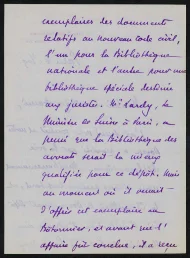 exemplaires des documents
relatifs au nouveau code civil,
l'un pour la Bibliothèque
nationale et l'autre pour une
bibliothèque spéciale destinée
aux juristes. Mr Lardy, le
Ministre de Suisse à Paris, a
pensé que la Bibliothèque des
avocats serait la mieux
qualifiée pour ce dépôt. Mais
au moment où il
d'offrir cet exemplaire au
Bâtonnier, et avant que l'
affaire fût conclue, il a reçu